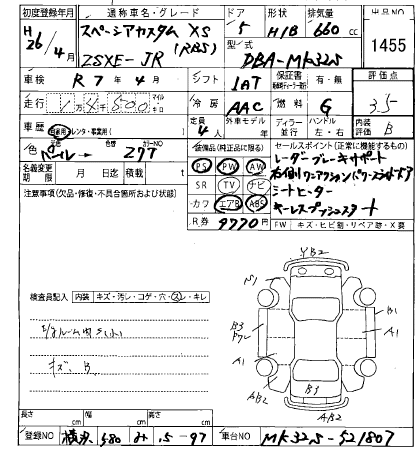 初度登録年月 通称車名・グレード ドア 形状 排気量 出品NO
H26/4月 スペーシアカスタム XS (RBS) 5 H/B 660cc 1455
ZSXE-JR 型式 DBA-MK32S
車検 R7年4月 シフト IAT 保証書 有・無 評価点
走行 冷房 AAC 燃料 G 3.5
車歴 自家用・レンタ・事業用( ) 定員 4人 外車モデル 年 ディーラー 並行 ハンドル 左・右 内装評価 B
色 パール→ 元色 色替 カラーNO Z7T 装備品(純正品に限る) セールスポイント(正常に機能するもの)
名義変更期限 月 日迄 積載 t PS PW AW レーダーブレーキサポート
注意事項(欠品・修復・不具合箇所および状態) SR TV ナビ
カワ エアB ABS シートヒーター
R券 9770円 キーレスプッシュスタート
FW キズ・ヒビ割・リペア跡・X要
検査員記入 内装 キズ・汚レ・コゲ・穴・スレ・キレ
キズ、B
YB2
B1
B3
A1
A1
B3
AB2
AB2
長さ cm 幅 cm 高さ cm
登録NO 580 み ・5-97 車台NO MK32S-521807